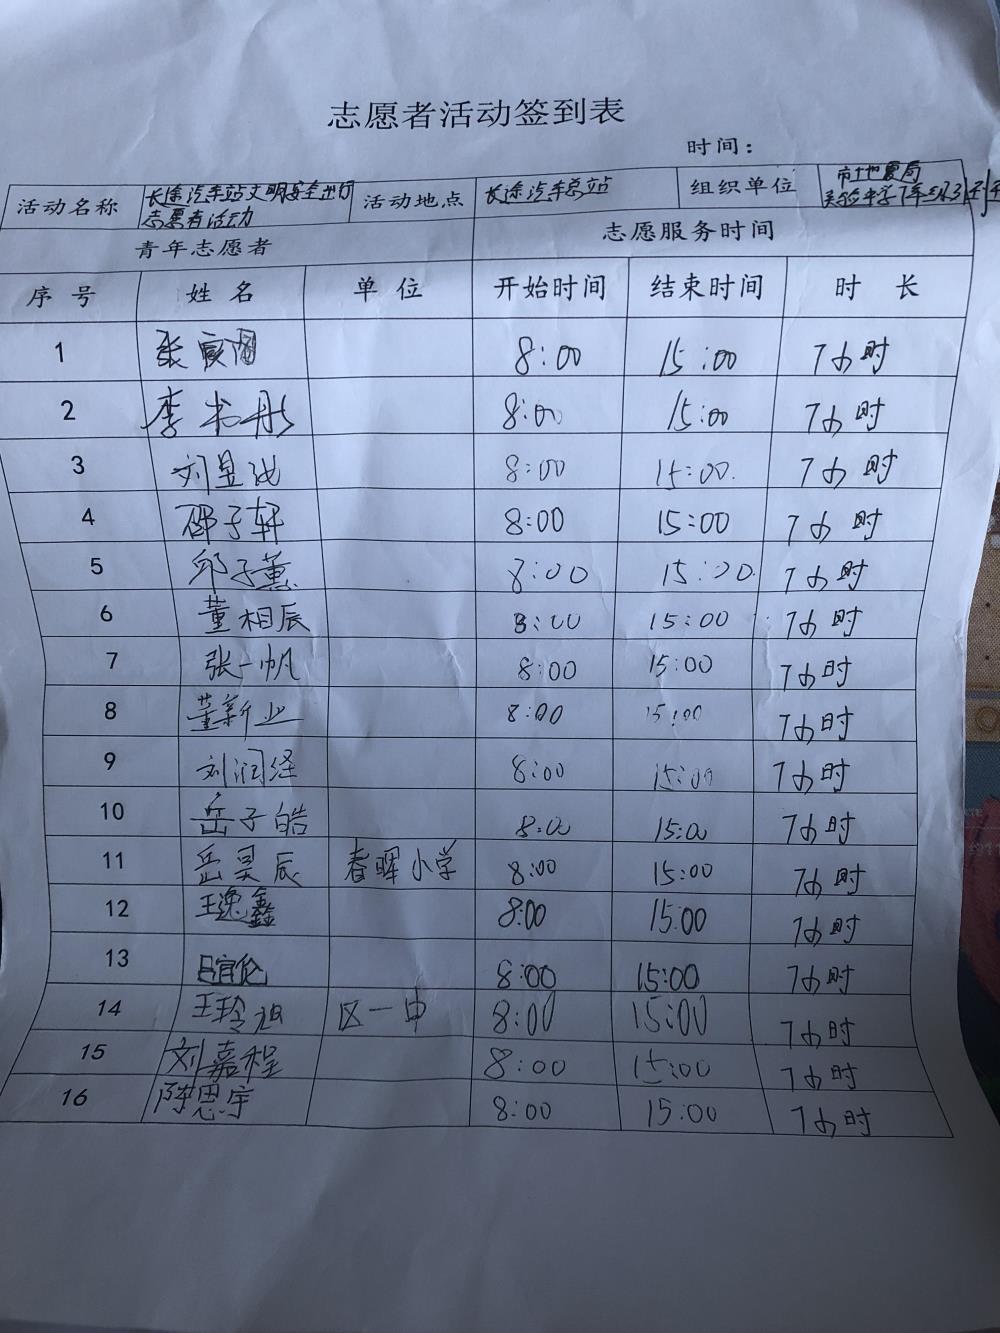 志愿者活动签到表
时间：
活动名称 长途汽车站文明安全出行志愿者活动 活动地点 长途汽车总站 组织单位 市地震局 实验中学7年级
青年志愿者 志愿服务时间
序号 姓名 单位 开始时间 结束时间 时长
1 张 8:00 15:00 7小时
2 李书彤 8:00 15:00 7小时
3 刘昱 8:00 15:00. 7小时
4 邵子轩 8:00 15:00 7小时
5 邱子薰 8:00 15:00. 7小时
6 董相辰 8:00 15:00 7小时
7 张一帆 8:00 15:00 7小时
8 董新业 8:00 15:00 7小时
9 刘润泽 8:00 15:00 7小时
10 岳子皓 8:00 15:00 7小时
11 岳昊辰 春晖小学 8:00 15:00 7小时
12 王逸鑫 8:00 15:00 7小时
13 吕宜伦 8:00 15:00 7小时
14 王玲旭 区一中 8:00 15:00 7小时
15 刘嘉程 8:00 15:00 7小时
16 陈思宇 8:00 15:00 7小时